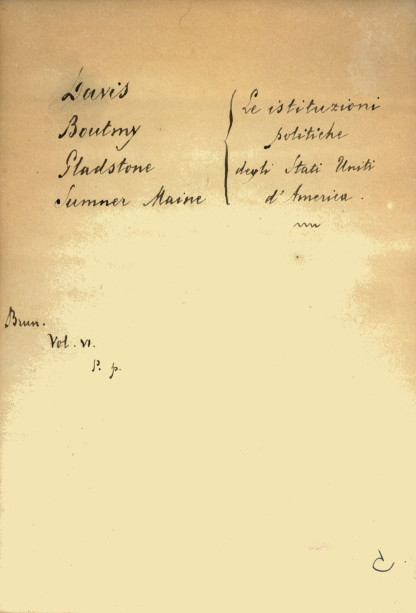 Davis
Boutmy
Gladstone
Sumner Maine
Le istituzioni
politiche
degli Stati Uniti
d'America.
Brun.
Vol. VI.
P. p.